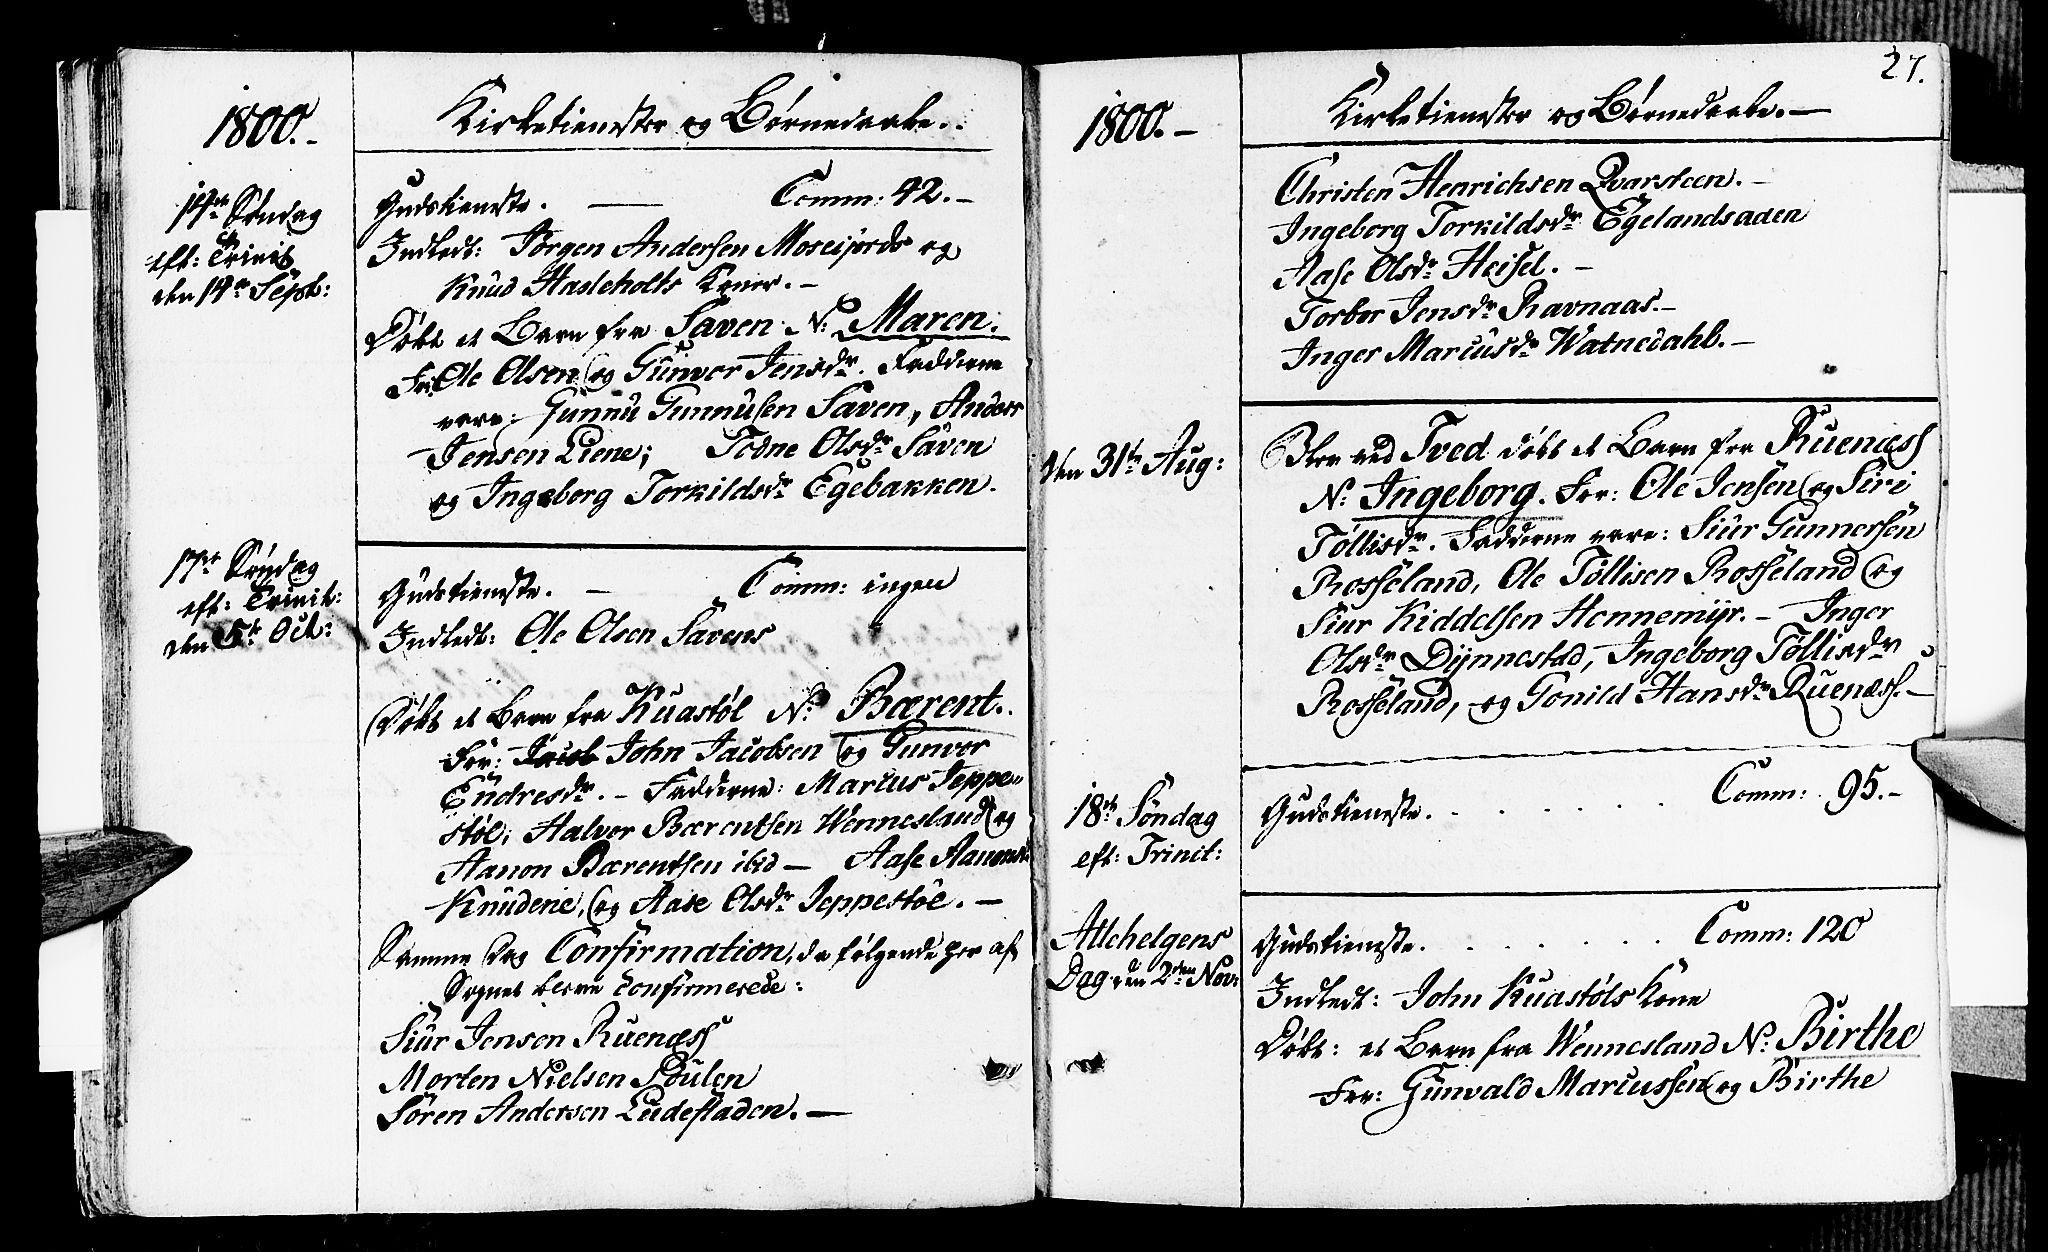 1800.-
Kirketienester og Børnedaabe..
14de Søndag
eft: Trinit
den 14de Sept:
Gudstieneste. — Comm: 42.-
Indledt: Jørgen Andersen Moseijords og
Knud Hasleholts Koner.-
Døbt et Barn fra Saven N: Maren.
For: Ole Olsen og Gunvor Jensdr. Fadderne
vare: Gunnu Gunnusen Saven, Anders
Jensen Liene; Todne Olsdr Saven
og Ingeborg Torkildsdr Egebakken.
17de Søndag
eft: Trinit:
den 5te Oct:
Gudstieneste. — Comm: ingen
Indledt: Ole Olsen Savens
Døbt et Barn fra Kuastøl N: Bærent.
For: Jacob John Jacobsen og Gunvor
Endresdr. - Fadderne: Marcus Jeppe-
støl; Halvor Bærentsen Wennesland og
Aanon Bærentsen ibid — Aase Aanonsdr
Knuderie, og Aase Olsdr Jeppestøl. —
Samme Dag Confirmation, da følgende her af
Sognet bleve confirmerede:
Siur Jensen Ruenæss
Morten Nielsen Poulen
Søren Andersen Ludestaden. —
27.
1800.-
Kirketienester og Børnedaabe.—
Christen Henrichsen Qvarsteen.-
Ingeborg Torkildsdr Egelandsaaen
Aase Olsdr Heisel.-
Torbor Jensdr Ravnaas.-
Inger Marcusdr Watnedahl.-
Den 31te Aug:
Blev ved Tved døbt et Barn fra Ruenæss
N: Ingeborg. For: Ole Jensen og Siri
Tøllisdr. Fadderne vare: Siur Gunnersen
Rosseland, Ole Tøllisen Rosseland og
Siur Kiddelsen Hennemijr.- Inger
Olsdr Dijnnestad, Ingeborg Tøllisdr
Rosseland, og Gonild Hansdr Ruenæss.-
18de Søndag
eft: Trinit:
Gudstieneste. . . . . . . Comm: 95.-
Allehelgens
Dag den 2den Nov:
Gudstieneste. . . . . . . Comm: 120
Indledt: John Kuastøls Kone
Døbt: et Barn fra Wennesland N: Birthe
For: Gunvald Marcussen og Birthe